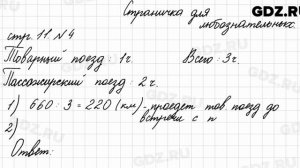 GDZ.RU
Страничка для
любознательных.
стр. 11 N 4
Товарный поезд : 1 ч.
Всего : 3 ч.
Пассажирский поезд : 2 ч.
1) 660 : 3 = 220 (км) - проедет тов. поезд до
встречи с п
2)
Ответ:
GDZ.RU